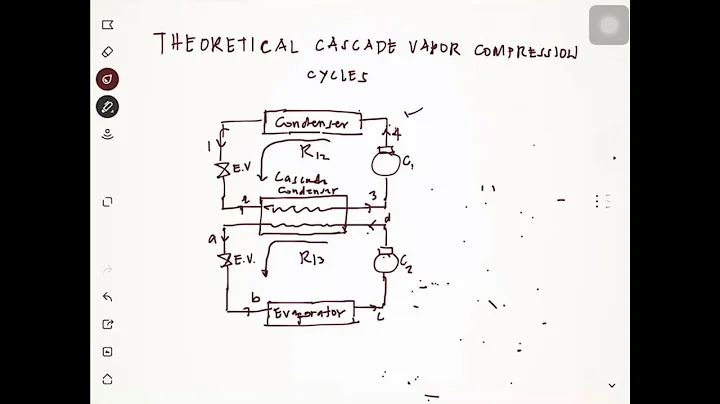 THEORETICAL CASCADE VAPOR COMPRESSION
CYCLES
Condenser
4
1
R12
E.V
C1
Cascade
Condenser
2
3
a
d
E.V.
R13
C2
b
Evaporator
c